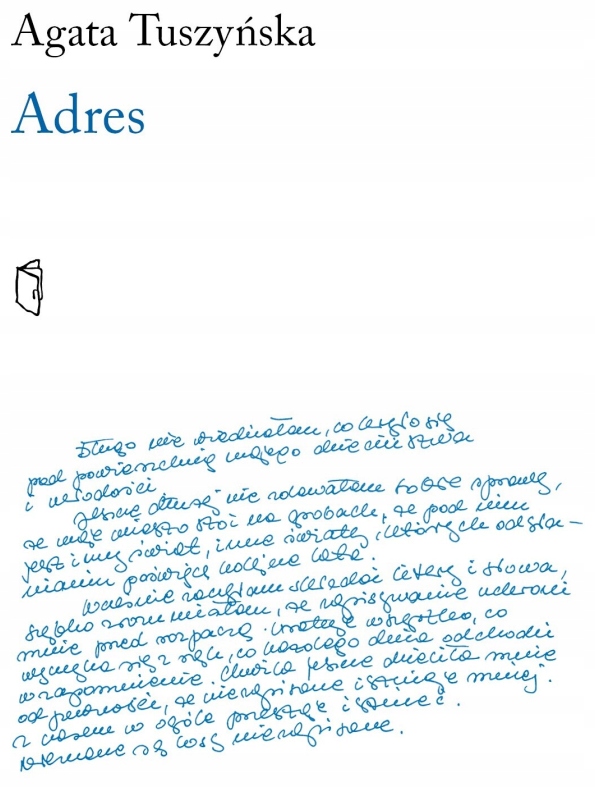 Agata Tuszyńska
Adres
Długo nie wiedziałam, co kryło się
pod powierzchnią mojego dzieciństwa
i młodości.
Jeszcze dłużej nie zdawałam sobie sprawy,
że moje miasto stoi na grobach, że pod nim
jest inny świat, inne światy, których odsła-
nianiu poświęcę kolejne lata.
Wcześnie zaczęłam składać litery i słowa,
szybko zrozumiałam, że zapisywanie uchroni
mnie przed rozpaczą. Uratuje wszystko, co
wymyka się z rąk, co każdego dnia odchodzi
w zapomnienie. Chwila jeszcze dzieliła mnie
od pewności, że niezapisane istnieje mniej.
z czasem w ogóle przestaje istnieć.
nieznane są losy niezapisane.